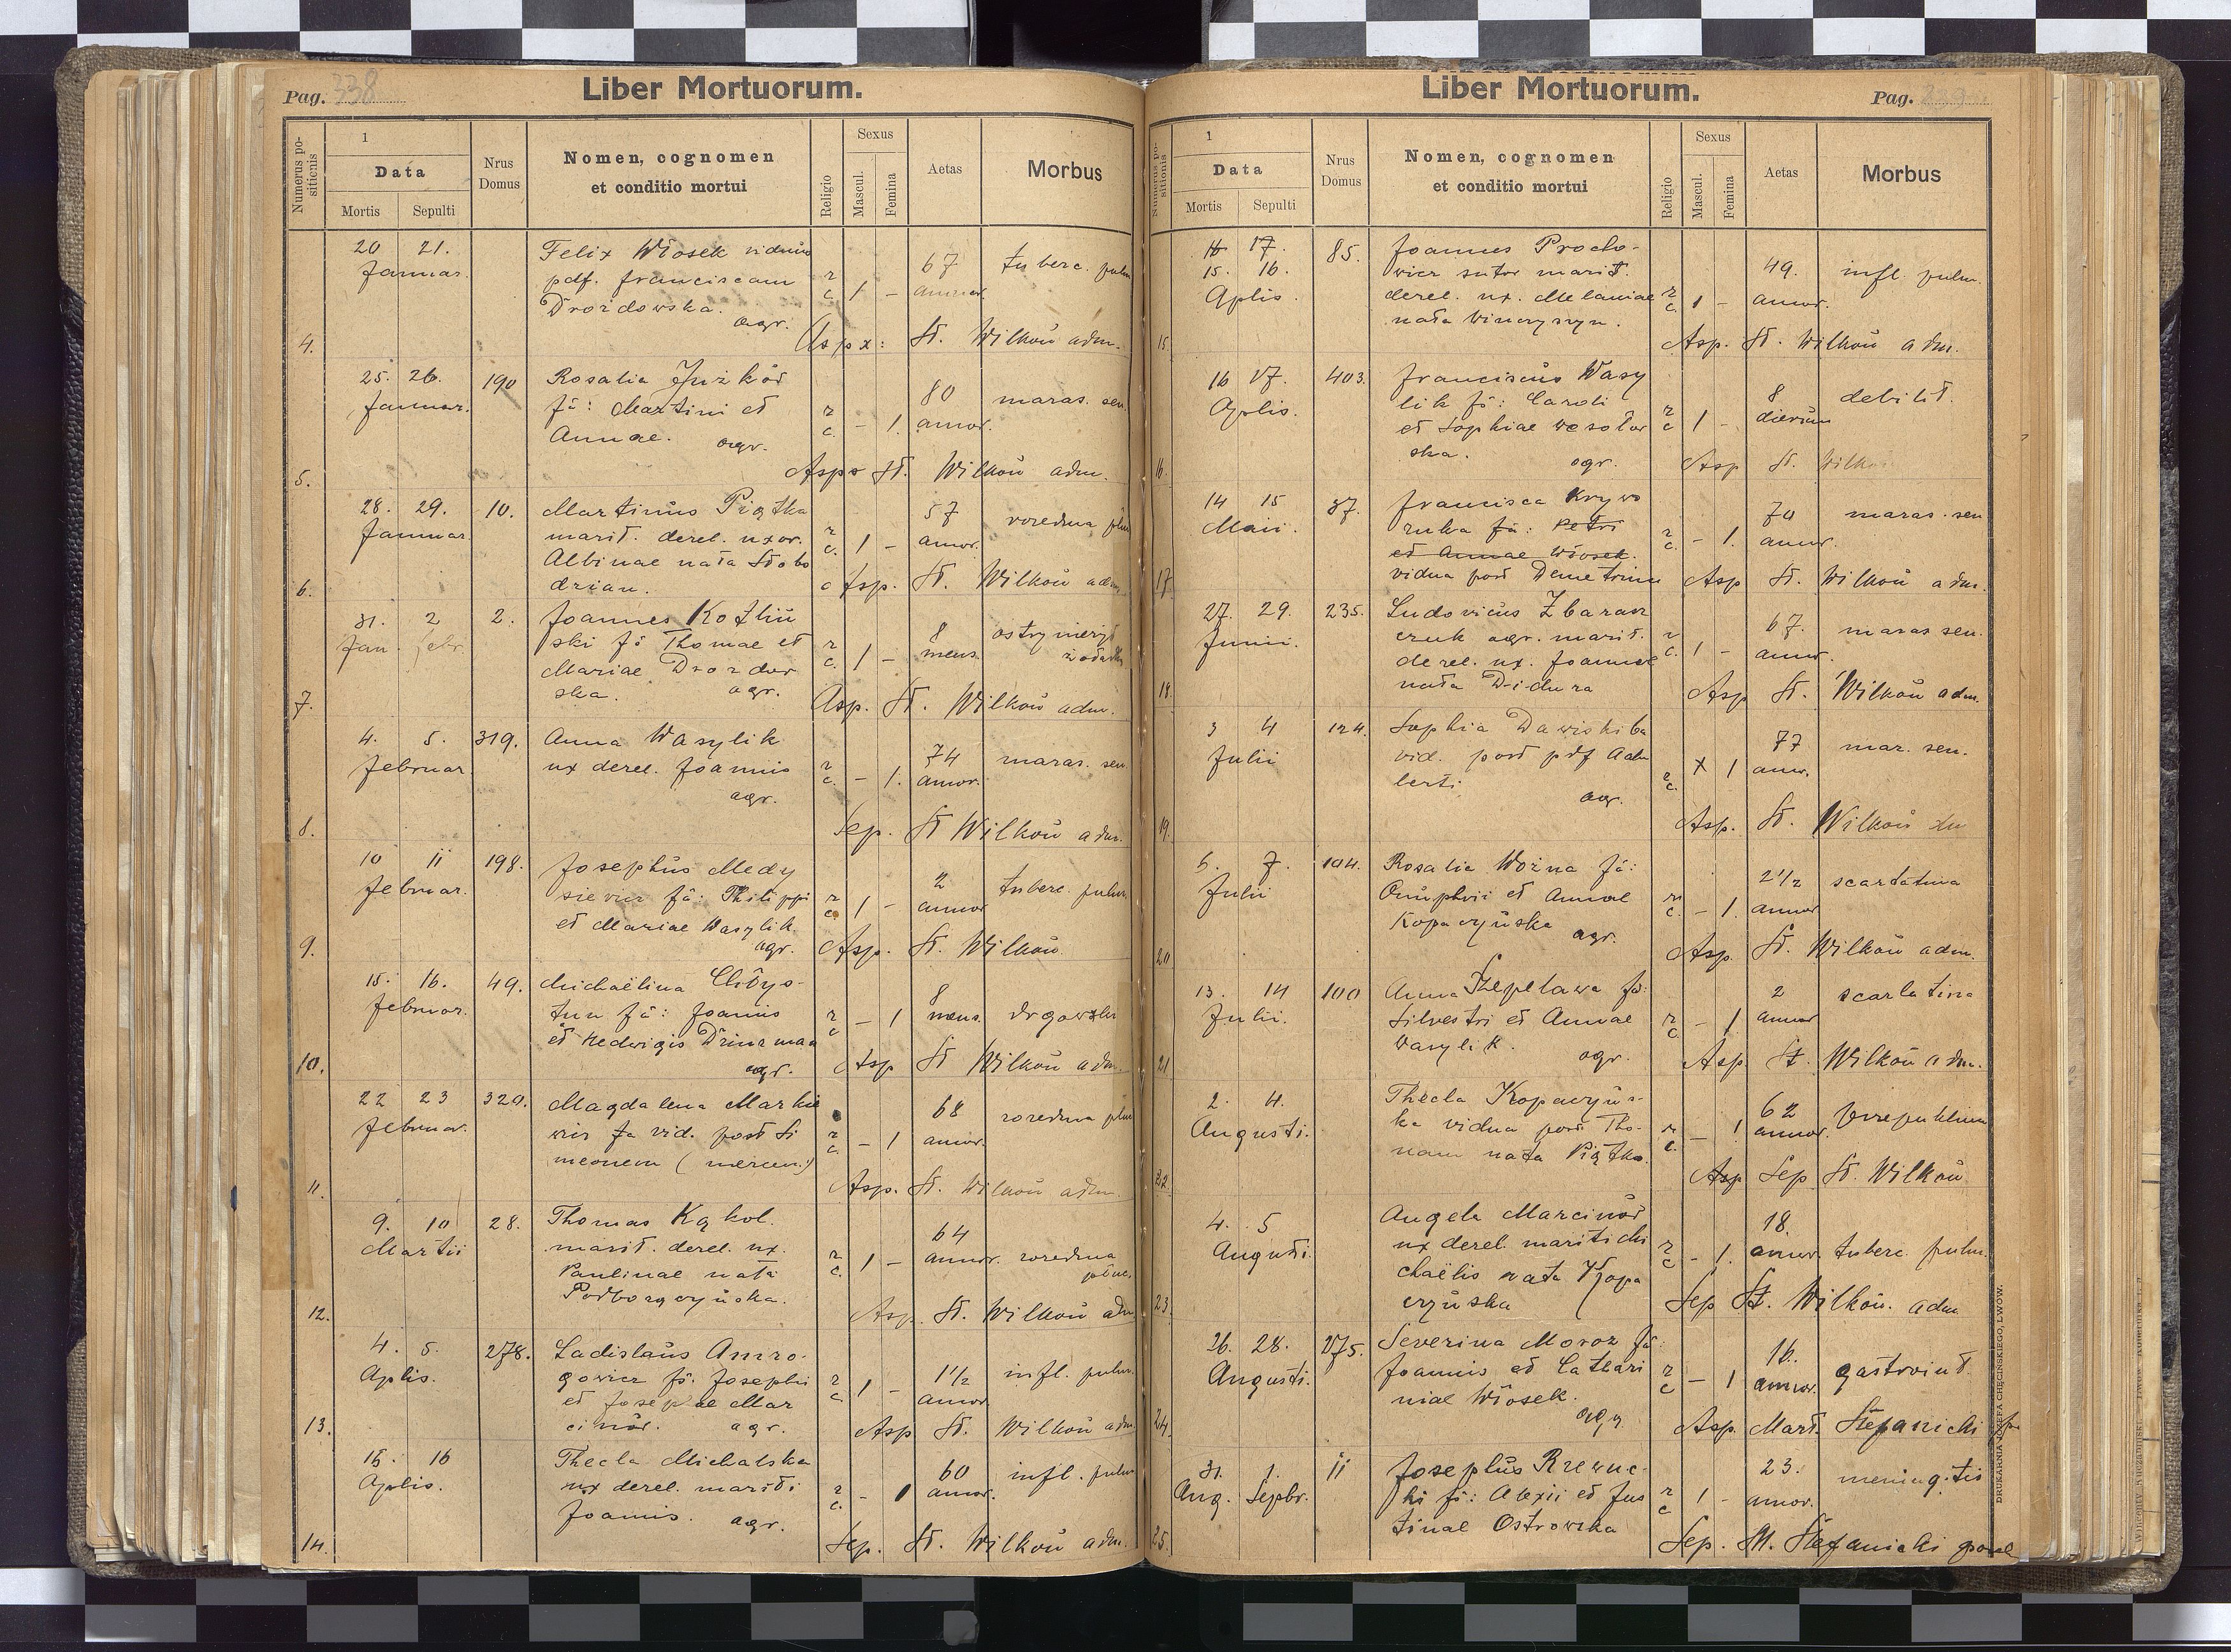 Pag. 338
Liber Mortuorum.
Numerus positionis
1
Data
Mortis Sepulti
Nrus Domus
Nomen, cognomen
et conditio mortui
Religio
Sexus
Mascul. Femina
Aetas
Morbus
20 21. Felix Włosek viduus
Januar. pdf. Franciscam r 67 tuberc. pulm
Drozdowska. c 1 – annor.
agr.
4. Asp x: St. Wilkoń adm.
25. 26. 190 Rosalia
Januar. fa: Martini et r 80 maras. sen.
Annae. agr. c. – 1. annor.
5. Asps St. Wilkoń adm.
28. 29. 10. Martinus Piątka 57
Januar marit. derel. uxor. r 1 – annor. rozedma płuc
Albinae nata Słobo c.
6. drian. Asp. St. Wilkoń adm
31. 2 2. Joannes Koźliń
Jan. febr. ski fs Thomae et r 8 ostry nieżyt
Mariae Drozdow c. 1 – mens. żołądka
ska. agr.
7. Asp. St. Wilkoń adm.
4. 5. 319. Anna Wasylik
Februar ux derel. Joannis r 74 maras. sen
agr. c. – 1. annor.
8. Sep. St Wilkoń adm.
10 11 198. Josephus Medy
Februar. siewicz fs: Philippi r 2 tuberc. pulm.
et Mariae Wasylik c. 1 – annor
agr.
9. Asp. St. Wilkoń
15. 16. 49. Michaëlina
Februar. fa: Joannis r 8
et Hedwigis c – 1 mens. drgawki
agr.
10. Asp St Wilkoń adm.
22 23 320. Magdalena Markie
Februar. wicz fa vid. post Si r 68 rozedma płuc
meonem (mercen.) c. – 1 annor.
11. Asp. St. Wilkoń adm.
9. 10 28. Thomas Kąkol.
Martii marit. derel. ux. r 64
Paulinae nata c. 1 – annor. rozedma
Podhorączyńska. płuc.
12. Asp. St. Wilkoń adm
4. 5. 278. Ladislaus Amro-
Aplis. gowicz fs. Josephi r 1 1/2 infl. pulm.
et Josepae Mar c 1 – annor.
ciniów. agr.
13. Asp St. Wilkoń adm
15. 16 Thecla Michalska
Aplis. ux derel. mariti r 60 infl. pulm
Joannis. agr. c. – 1 annor.
14. Sep. St. Wilkoń adm.
Liber Mortuorum.
Pag.
Numerus positionis
1
Data
Mortis Sepulti
Nrus Domus
Nomen, cognomen
et conditio mortui
Religio
Sexus
Mascul. Femina
Aetas
Morbus
16 17. 85. Joannes Procho-
15. 16. wicz sutor marit. 49. infl. pulm.
Aplis. derel. ux. Melaniae r c. 1 – annor.
nata Winczyszyn.
15. Asp. St. Wilkoń adm.
16 17. 403. Franciscus Wasy
Aplis. lik fs: Caroli r 8 debilit.
et Sophiae Wesołow c 1 – dierum
ska. agr.
16. Asp St. Wilkoń
14 15 37. Francisca Krywo
Maii. fa: Petri r 70 maras. sen
et Annae Włosek. c. – 1. annor.
17. vidua post Demetrium Asp St. Wilkoń adm.
27. 29. 235. Ludovicus Zbaraz
Junii. czuk agr. marit. r 67. maras sen.
derel. ux. Joannae c. 1 – annor.
18. nata Didura Asp St. Wilkoń adm.
3 4 124. Sophia Dawiskiba
Julii vid. post pdf Adal 77 mar. sen.
berti agr. r c. x 1 annor.
19. Asp. St. Wilkoń
5. 7. 104. Rosalia Woźna fa:
Julii Onuphrii et Annae r 2 1/2 scarlatina
Kopaczyńska agr. c. – 1. annor
20. Asp. St. Wilkoń adm.
13. 14 100 Anna Szepelawa fa:
Julii. Silvestri et Annae r 2 scarlatina
Wasylik. agr. c – 1 annor
21 Asp St. Wilkoń adm.
2. 4. Thecla Kopaczyńs-
Augusti. ka vidua post Tho- r 62
mam nata Piątka. c. – 1 annor.
22. Asp Sep St. Wilkoń
4. 5 Angela Marcinów
Augusti. ux derel. mariti Mi r 18.
chaëlis nata Kopa c – 1. annor. tuberc. pulm.
czyńska
23. Sep St. Wilkoń. adm
26. 28. 275. Severina Moroz fa:
Augusti. Joannis et Cathari r 16. gastroint.
niae Włosek. c – 1 annor.
agr.
24. Asp. Mart. Stefanicki
31. 1. 11 Josephus Rzewuc-
Aug. Sepbr. ki fs: Alexii et Jus r 23. meningitis
tinae Ostrowska c 1 – annor.
25. Sep. M. Stefanicki
DRUKARNIA JÓZEFA CHĘCIŃSKIEGO, LWÓW.